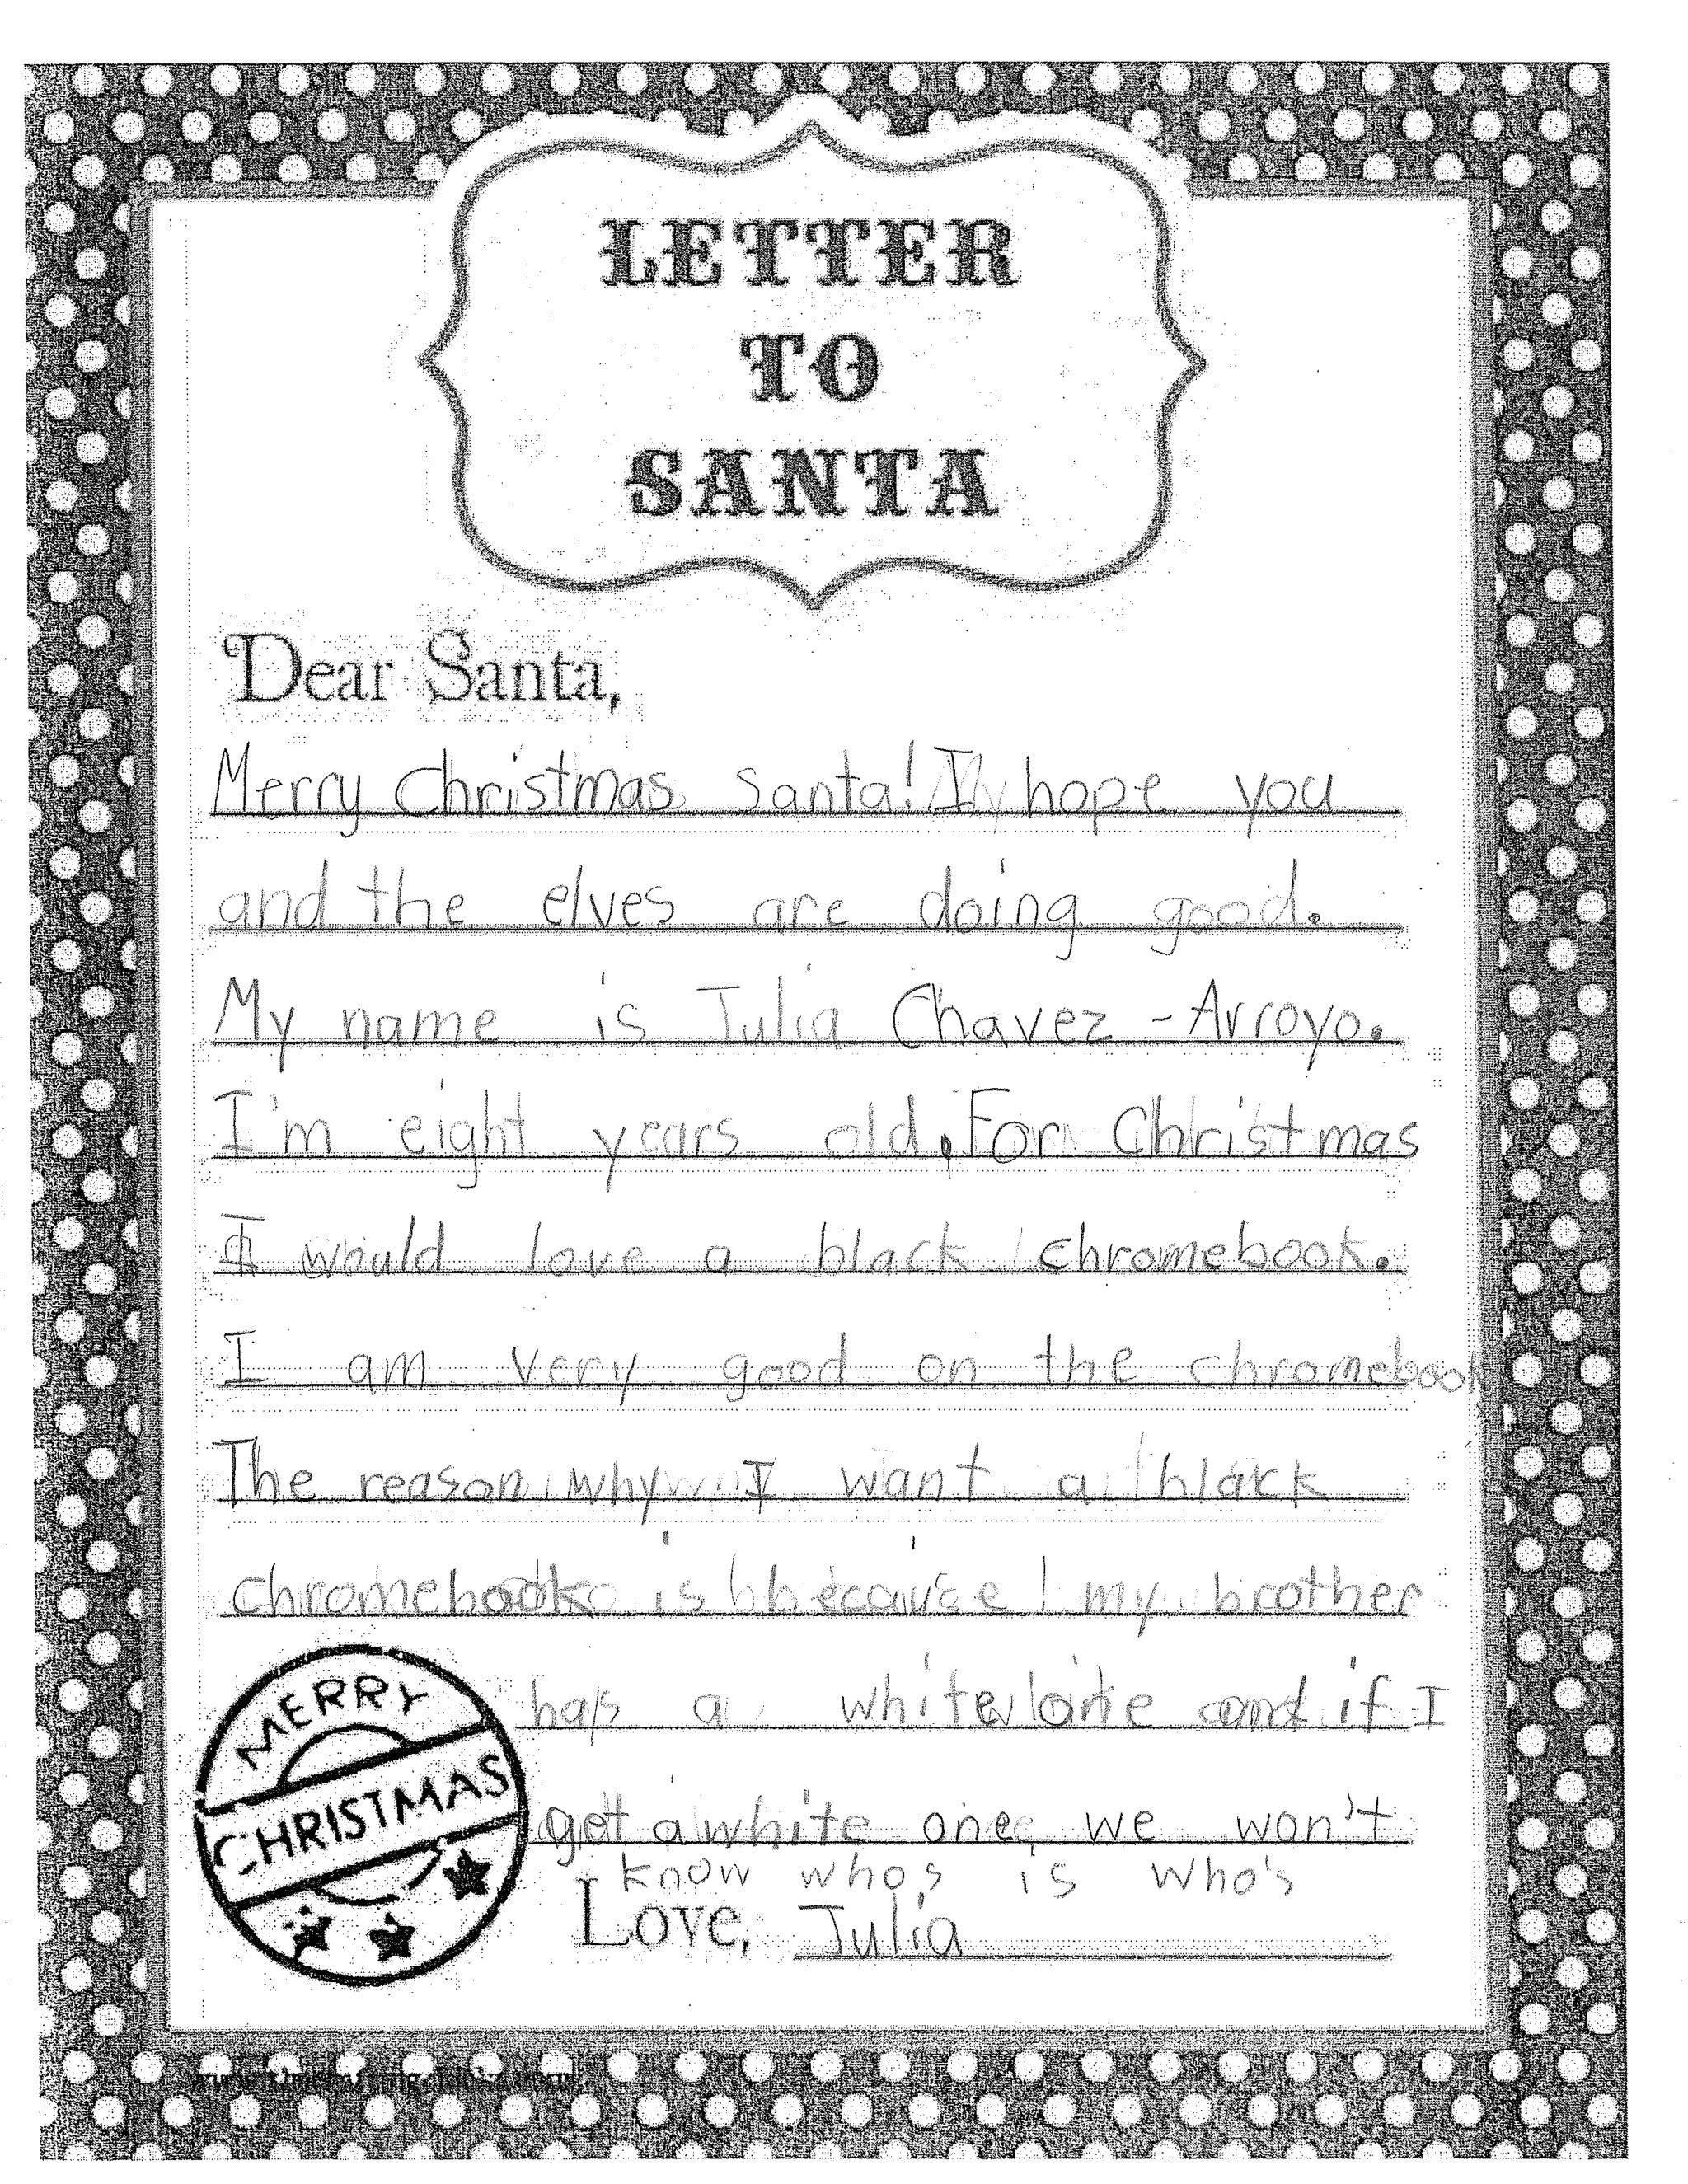 LETTER
TO
SANTA
Dear Santa,
Merry Christmas Santa! I hope you
and the elves are doing good.
My name is Julia Chavez - Arroyo.
I'm eight years old. For Christmas
I would love a black chromebook.
I am very good on the chromebook
The reason why I want a black
chromebook is because my brother
has a white one and if I
get a white one, we won't
know who's is who's
Love, Julia
MERRY
CHRISTMAS